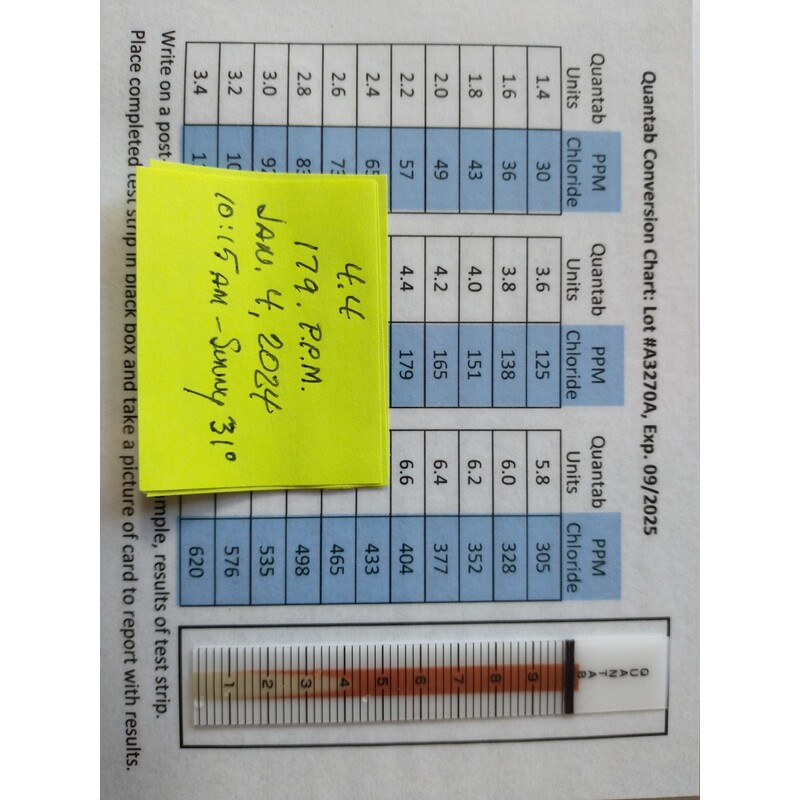 Quantab Conversion Chart: Lot #A3270A, Exp. 09/2025
Quantab Units PPM Chloride Quantab Units PPM Chloride Quantab Units PPM Chloride
1.4 30 3.6 125 5.8 305
1.6 36 3.8 138 6.0 328
1.8 43 4.0 151 6.2 352
2.0 49 4.2 165 6.4 377
2.2 57 4.4 179 6.6 404
2.4 433
2.6 465
2.8 498
3.0 535
3.2 576
3.4 620
4.4
179. P.P.M.
JAN. 4, 2024
10:15 AM - Sunny 31°
Write on a post mple, results of test strip.
Place completed test strip in black box and take a picture of card to report with results.
QUANTAB
9
8
7
6
5
4
3
2
1